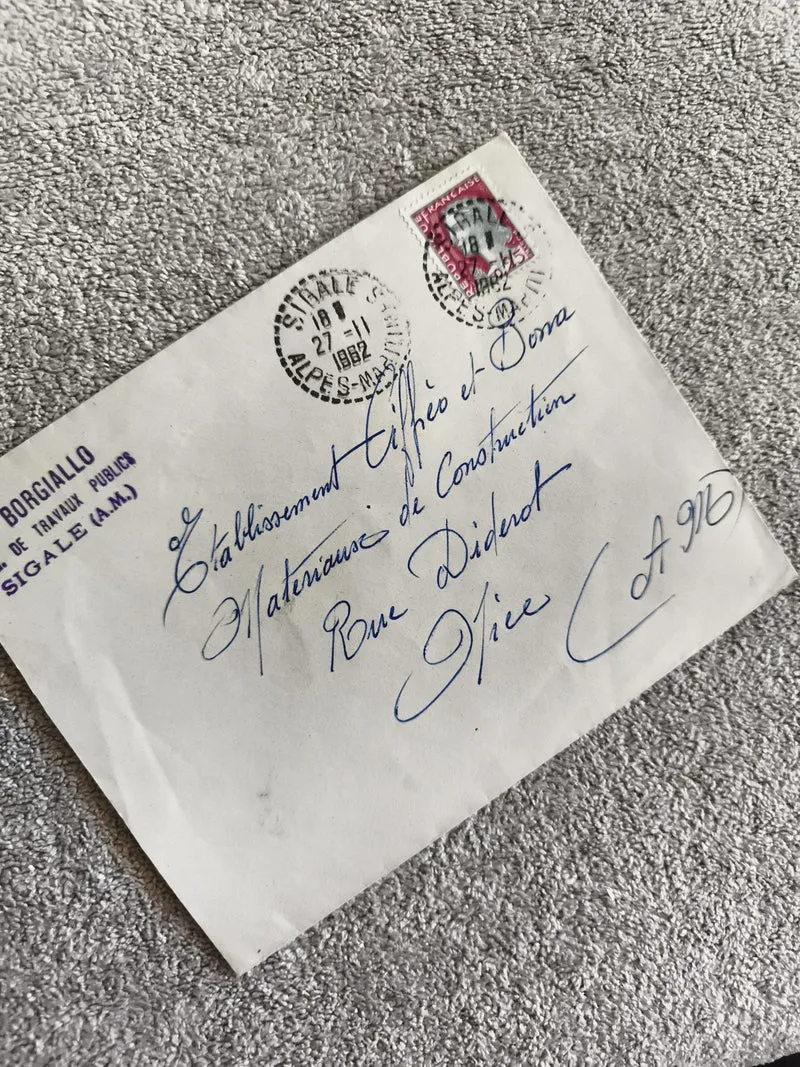 BORGIALLO
DE TRAVAUX PUBLICS
SIGALE (A.M.)
SIGALE
18 H
27 -11
1962
ALPES-MAR
REPUBLIQUE FRANCAISE
SIGALE
18 H
27 -11
1962
ALPES-MARIT
Etablissement Ciffréo et Bona
Materiaux de Construction
Rue Diderot
Nice (AM)